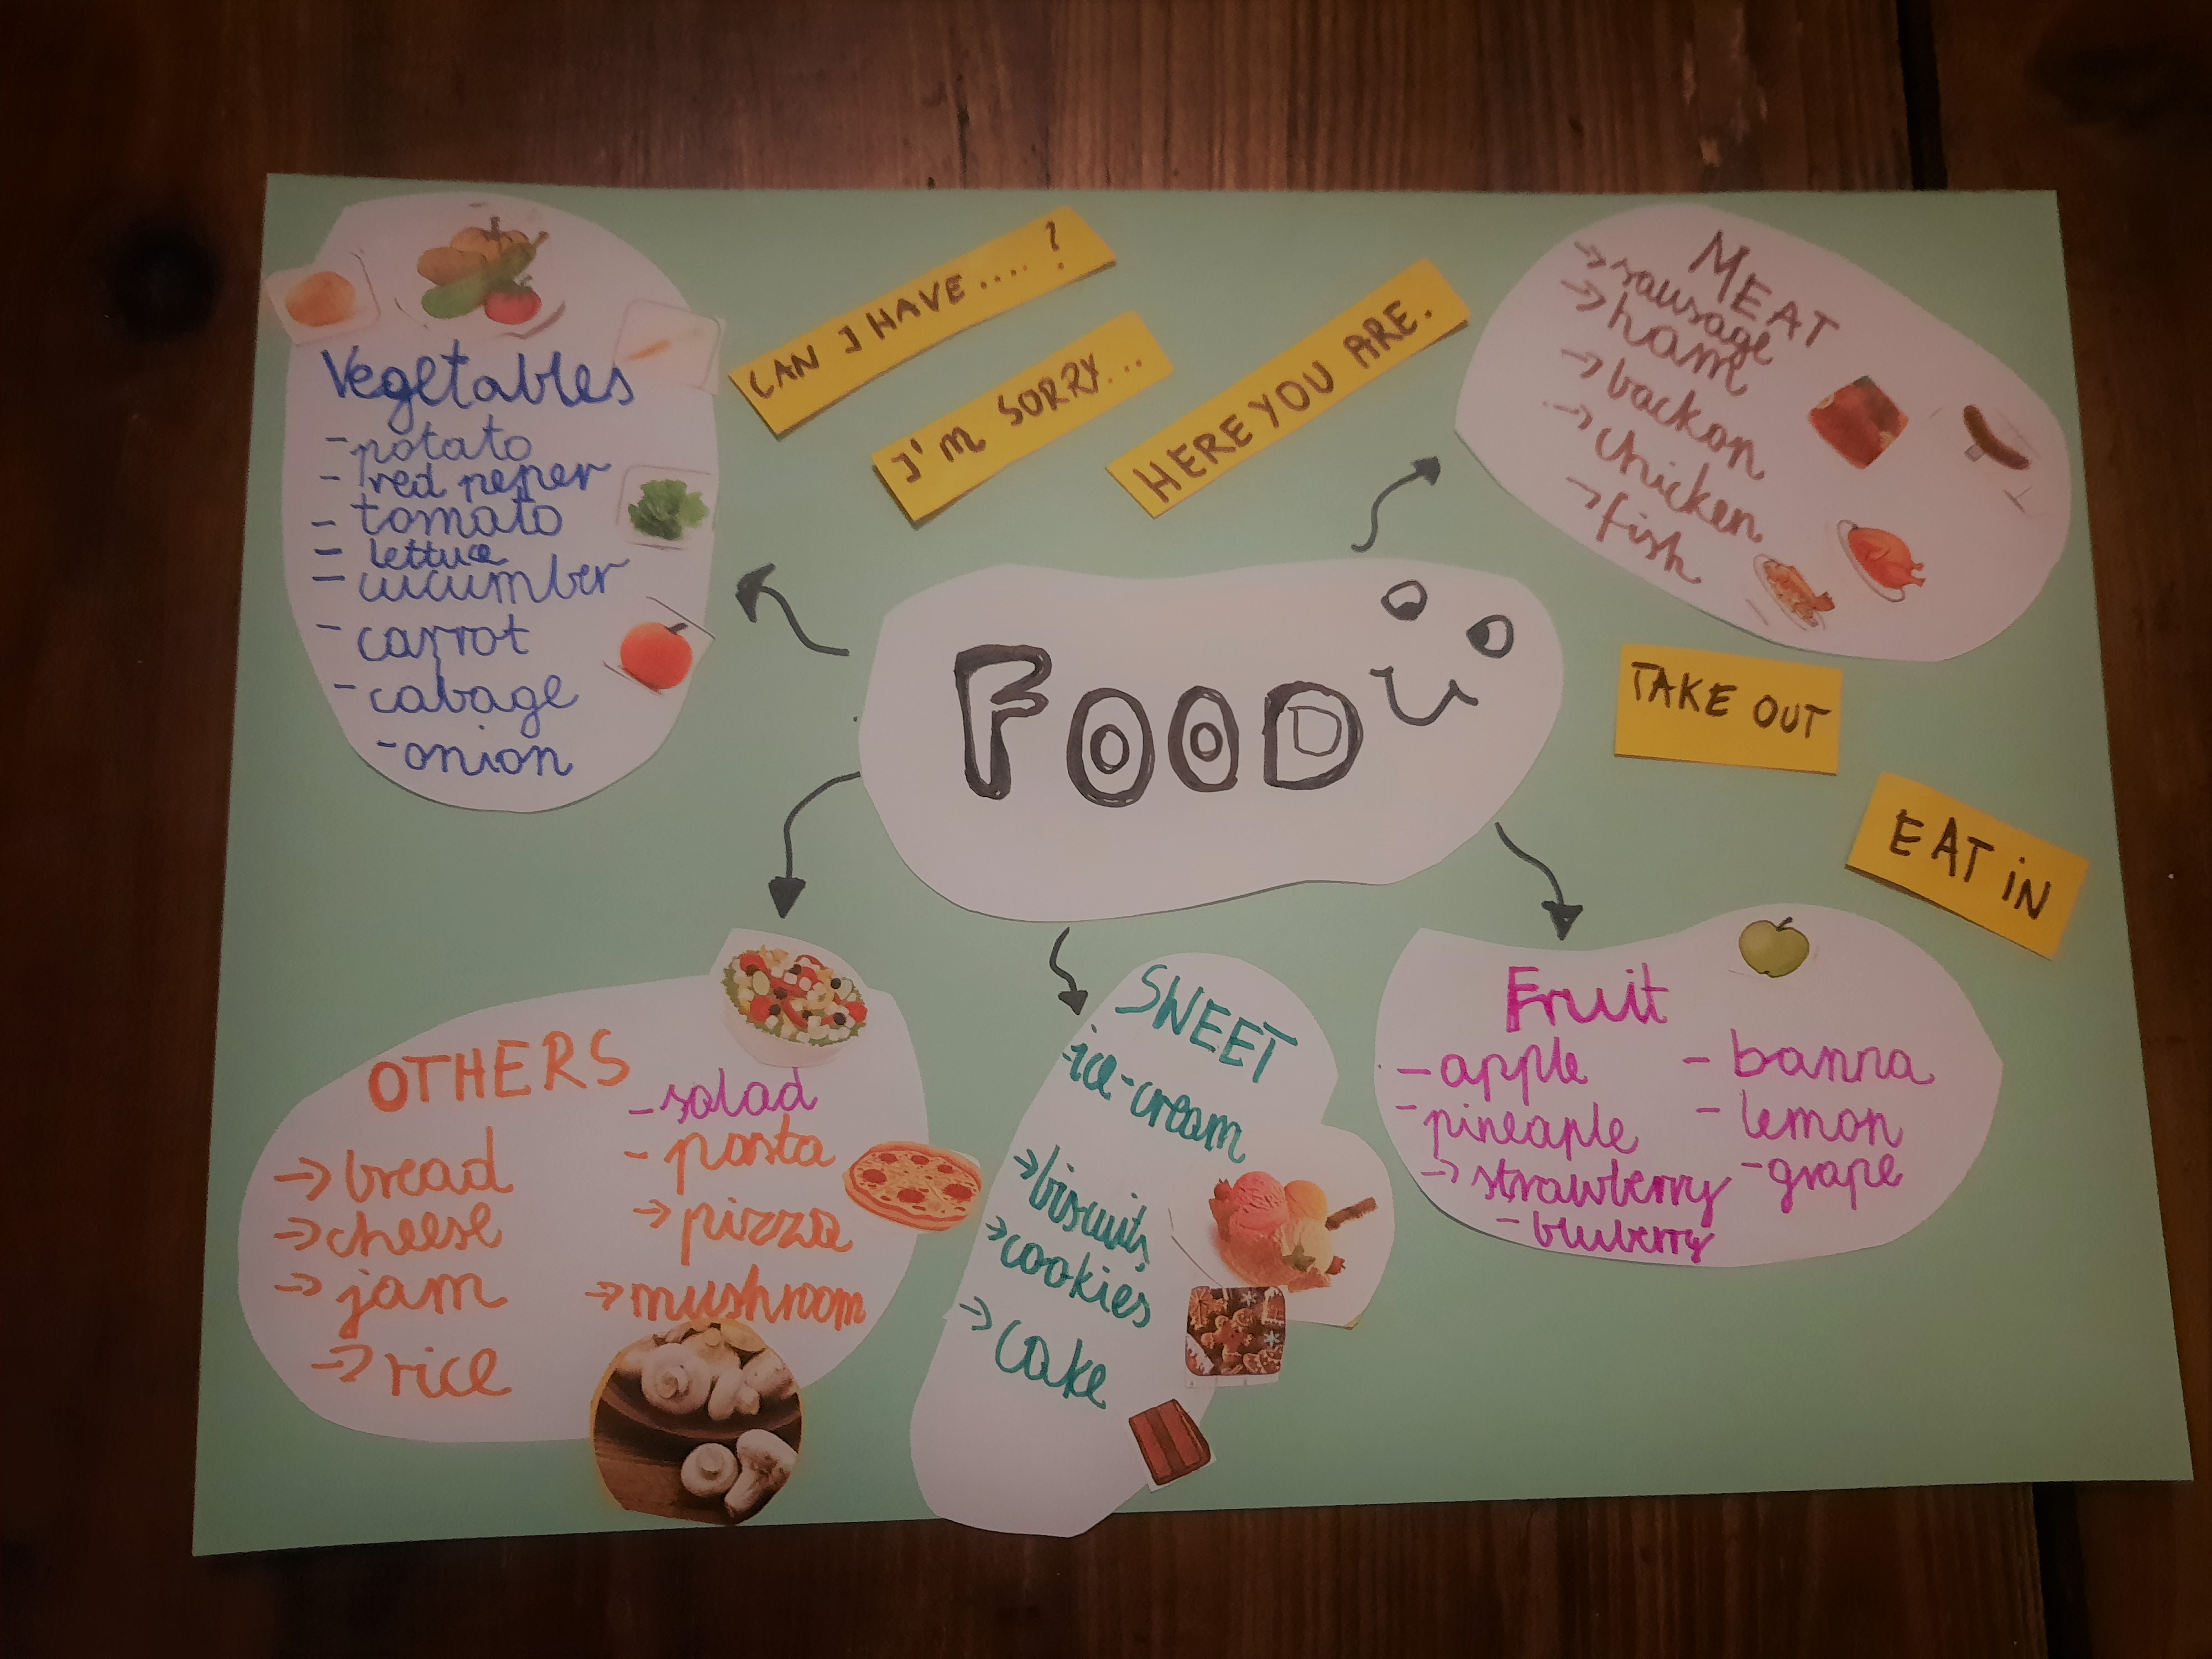 Vegetables
- potato
- red peper
- tomato
- lettuce
- cucumber
- carrot
- cabage
- onion
CAN I HAVE.... ?
I'M SORRY...
HERE YOU ARE.
MEAT
→ sausage
→ ham
→ backon
→ chicken
→ fish
FOOD
TAKE OUT
EAT IN
OTHERS
→ bread
→ cheese
→ jam
→ rice
- salad
- pasta
→ pizza
→ mushroom
SWEET
- ice-cream
→ biscuits
→ cookies
→ cake
Fruit
- apple
- pineaple
→ strawberry
- bluberry
- banna
- lemon
- grape